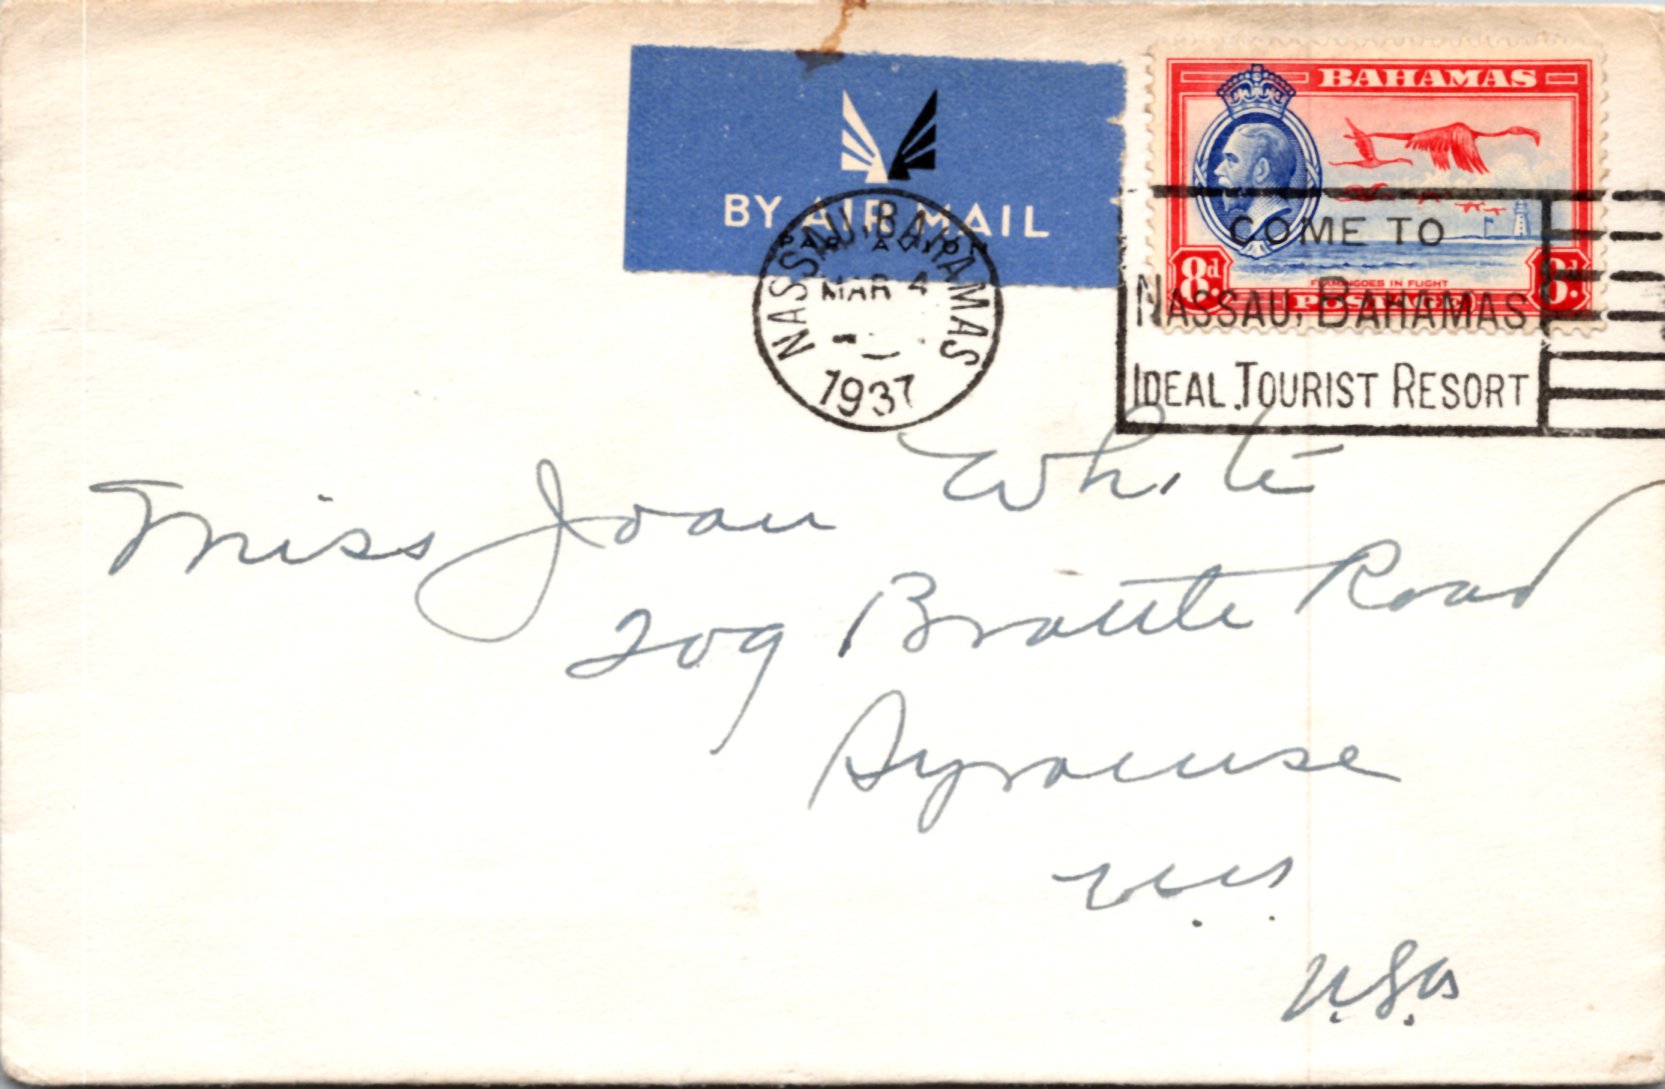 BAHAMAS
BY AIR MAIL
PAR AVION
NASSAU, BAHAMAS
MAR 4
1937
COME TO
NASSAU, BAHAMAS
IDEAL TOURIST RESORT
8d.
FLAMINGOES IN FLIGHT
8d.
POSTAGE
Miss Joan White
209 Brattle Road
Syracuse
U.S.A.